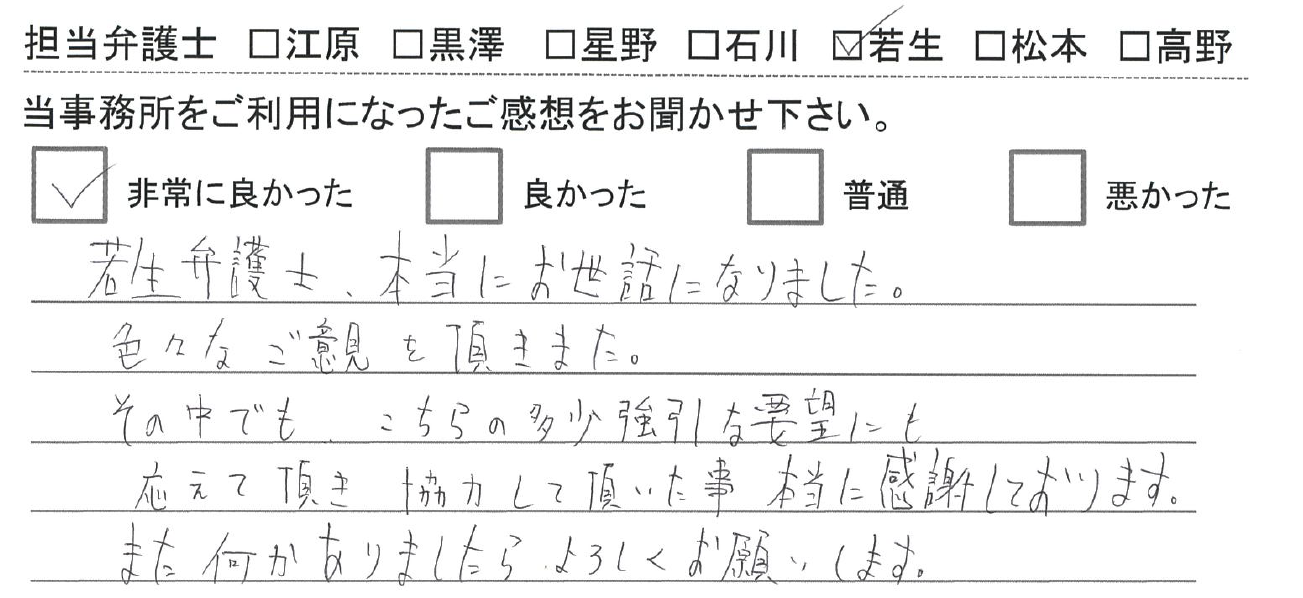 担当弁護士 □江原 □黒澤 □星野 □石川 ☑若生 □松本 □高野
当事務所をご利用になったご感想をお聞かせ下さい。
☑ 非常に良かった □ 良かった □ 普通 □ 悪かった
若生弁護士、本当にお世話になりました。
色々なご意見を頂きまた。
その中でも、こちらの多少強引な要望にも
応えて頂き 協力して頂いた事 本当に感謝しております。
また何かありましたら、よろしくお願いします。